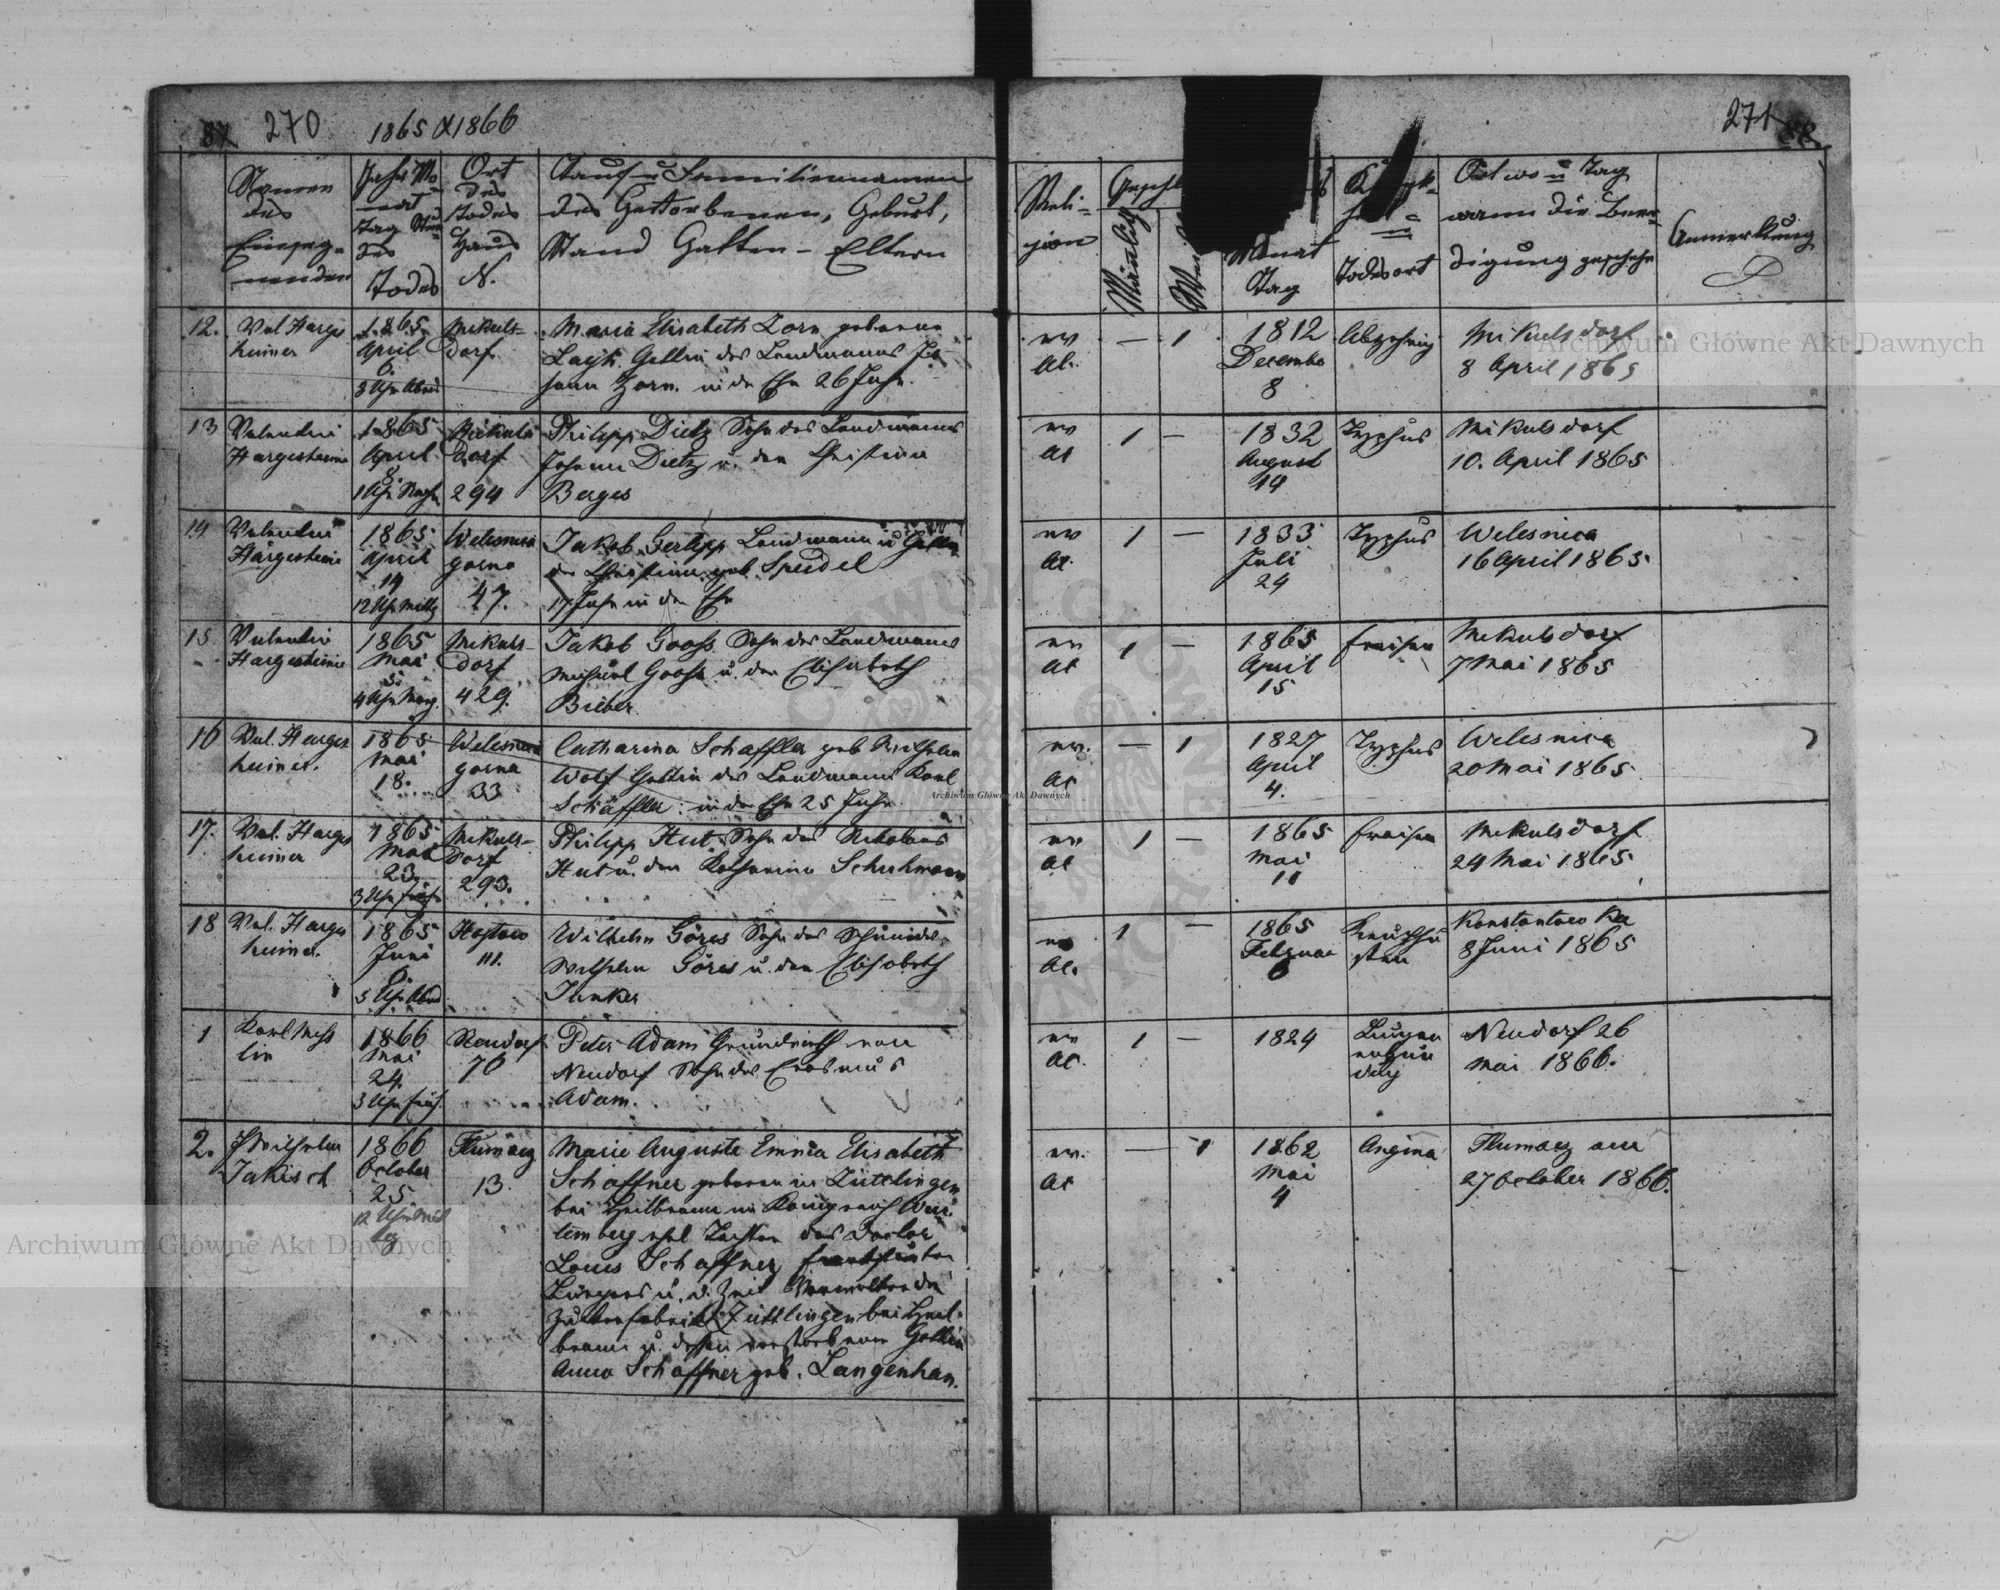 270 1865 & 1866
Namen des Einsegnenden
Jahr Monat Tag Stunde des Todes
Ort des Todes Haus N.
Tauf u Familiennamen des Gestorbenen, Geburt, Stand Gatten - Eltern
12. Val Hargesheimer
1865 April 6. 8 Uhr Abend
Mikulsdorf
Maria Elisabeth Zorn geborene
Gattin des Landmanns Johann Zorn. in der Ehe 26 Jahr.
13 Valentin Hargesheimer
1865 April 8 1 Uhr Nachm
Mikulsdorf 294
Philipp Dietz Sohn des Landmanns
Johann Dietz u. der Christina
Berges
14 Valentin Hargesheimer
1865 April 14 12 Uhr Mittg
Welesnica gorna 47.
Jakob Gerlipp Landmann u Gatte
der Christina geb. Speidel
17 Jahr in der Ehe
15. Valentin Hargesheimer
1865 Mai 5. 4 Uhr Morg.
Mikulsdorf 429.
Jakob Gooss Sohn des Landmanns
Michael Gooss u. der Elisabeth
Bieber
16 Val. Hargesheimer.
1865 Mai 18.
Welesnica gorna 33
Catharina Schäffler geb Wilhelm
Wolf Gattin des Landmanns Karl
Schäffler: in der Ehe 25 Jahr.
17. Val. Hargesheimer
1865 Mai 23. 3 Uhr früh
Mikulsdorf 293.
Philipp Hut Sohn des Nikolaus
Hut u. der Katharina Schuhmann
18 Val. Hargesheimer.
1865 Juni 6. 5 Uhr Abend
111.
Wilhelm Göres Sohn des Schmides
Wilhelm Göres u. der Elisabeth
Junker
1 Karl
1866 Mai 24. 3 Uhr früh.
Neudorf 76
Peter Adam Grundwirth von
Neudorf Sohn des Erasmus
Adam.
2. Wilhelm Jakisch
1866 October 25 12 Uhr Mittg
Tlumacz 13.
Marie Auguste Emma Elisabeth
Schaffner geboren in Züttlingen
bei Heilbronn im Königreich Würtemberg ehel Tochter des Doctor
Louis Schaffner
Bürgers u. d. Zeit Verwalter der
Zuckerfabrik Züttlingen bei Heilbronn u. dessen verstorbenen Gattin
Anna Schaffner geb. Langenhan.
271
Religion
Männlich
Monat Tag
Todesart
Ort wo u Tag wann die Beerdigung geschehen
Anmerkung
ev AC. — 1 1812 Decembe 8 Abzehrung Mikulsdorf 8 April 1865
ev AC 1 — 1832 August 14 Typhus Mikulsdorf 10. April 1865
ev AC. 1 — 1833 Juli 24 Typhus Welesnica 16 April 1865
ev AC 1 — 1865 April 15 Fraisen Mikulsdorf 7 Mai 1865
ev. AC — 1 1827 April 4. Typhus Welesnica 20 Mai 1865
ev AC 1 — 1865 Mai 11 Fraisen Mikulsdorf 24 Mai 1865
ev AC. 1 — 1865 Februar 6 Keuchhusten Konstantowka 8 Juni 1865
ev AC. 1 — 1824 Lungenentzündung Neudorf 26 Mai 1866.
ev. AC — 1 1862 Mai 4 Angina Tlumacz am 27 October 1866.
Archiwum Główne Akt Dawnych
Archiwum Główne Akt Dawnych
Archiwum Główne Akt Dawnych